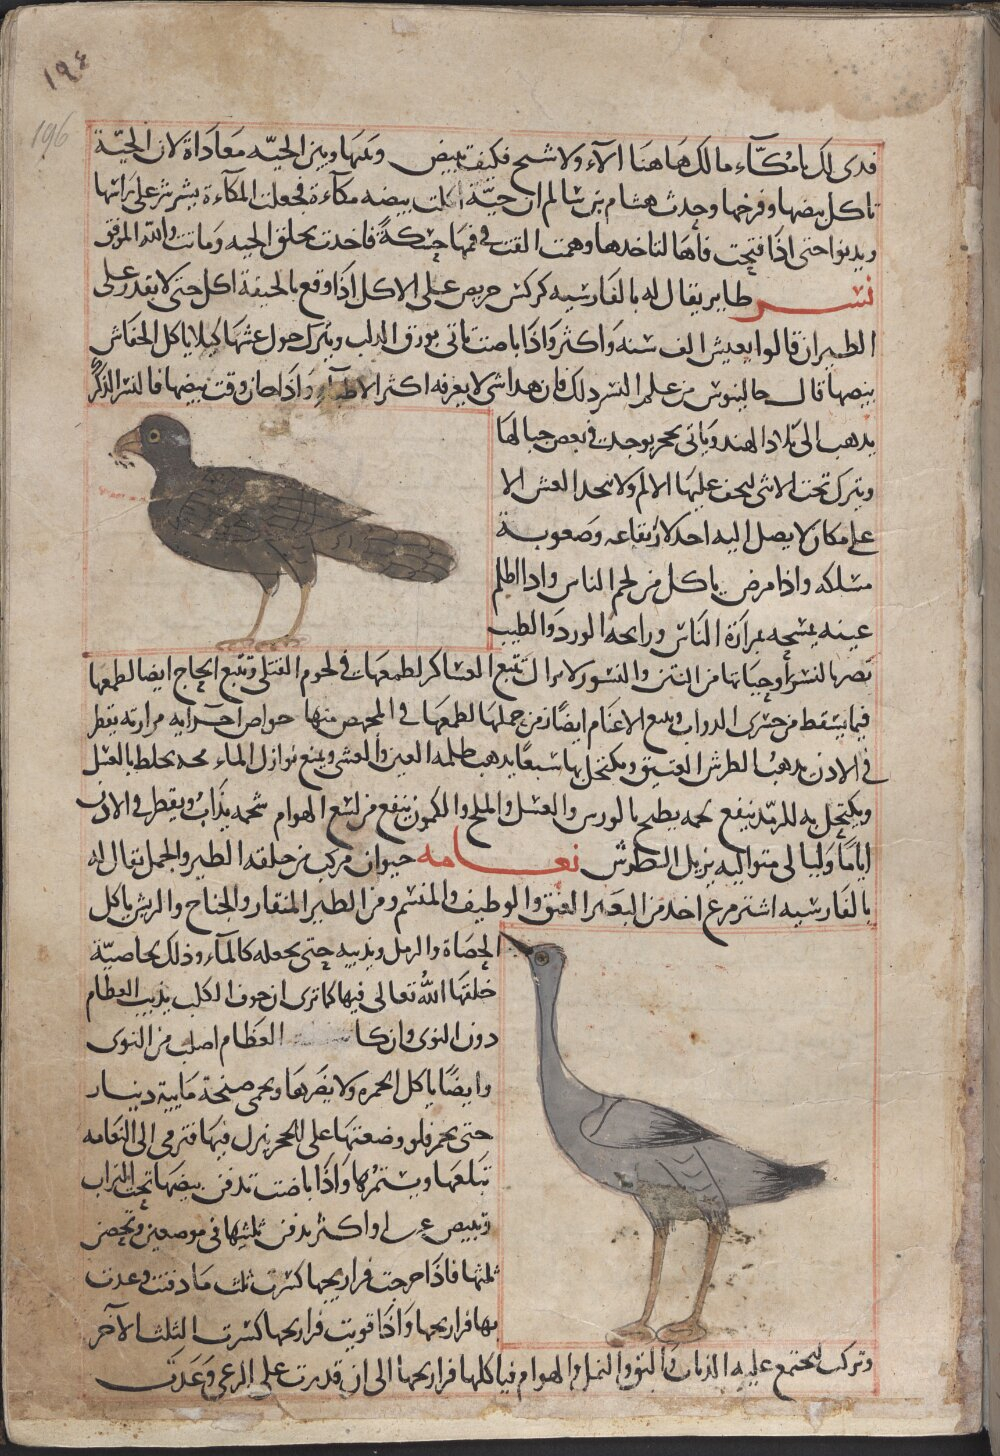 ١٩٤
196
فدى لك يا مكّاء مالك هاهنا الآء ولا شيح فكيف تبيض وبينها وبين الحيّه معاداة لان الحيّة
تاكل بيضها وفرخها وحدث هشام بن سالم ان حيّة اكلت بيضه مكآءة فجعلت المكآءة يشرشر على راسها
ويدنوا حتى اذا فتحت فاها لتاخدها وهمت القت في فمها حسكةً فاخدت بحلق الحيه وماتت والله الموفق
نسر طاير يقال له بالفارسيه كركس حريص على الاكل اذا وقع بالجيفة اكل حتى لا يقدر على
الطيران قالوا يعيش الف سنه واكثر واذا باضت ياتى بورق الدلب ويترك حول عشها كيلا ياكل الخفاش
بيضها قال جالينوس من علم النسر دلك فان هدا شى لا يعرفه اكثر الاطبآء واذا حان وقت بيضها فالنسر الذكر
يدهب الى بلاد الهند وياتى بحجر يوجد في بعض جبالها
ويترك تحت الانثى ليخف عليها الالم ولا يتخد العش الا
على مكان لا يصل اليه احد لارتفاعه وصعوبة
مسلكه واذا مرض ياكل من لحم الناس واذا اظلم
عينه يمسحه بمرارة الناس ورايحه الورد والطيب
تضر بالنسر وحياتها من النتن والنسور لا يزال تتبع العساكر لطمعها في لحوم القتلى وتتبع الحاج ايضا لطمعها
فيما يسقط من حسرى الدواب وتتبع الاغنام ايضا زمن حملها لطمعها في المجهض منها خواص اجزايه مرارته يقطر
في الاذن يدهب الطرش العتيق ويكتحل بها سبعًا يدهب ظلمه العين والعشى ويمنع نوازل المآء مخه يخلط بالعسل
ويكتحل به للرمد ينفع لحمه يطبخ بالورس والعسل والملح والكمون ينفع من لسع الهوام شحمه يذاب ويقطر في الاذن
اياما وليالى متواليه يزيل الطرش نعامه حيوان مركب من خلقه الطير والجمل يقال له
بالفارسيه اشترمرغ اخذ من البعير العنق والوظيف والمنسم ومن الطير المنقار والجناح والريش ياكل
الحصاة والرمل ويذيبه حتى يجعله كالمآء وذلك بخاصيّة
خلقها الله تعالى فيها كما ترى ان جوف الكلب يذيب العظام
دون النوى وان كانت العظام اصلب من النوى
وايضًا ياكل الجمره ولا يضرها ويحمى صنجة مايية دينار
حتى يحمر فلو وضعتها على الحجر نزل فيها فترمى الى النعامه
تبلعها ويستمرها واذا باضت تدفن بيضها تحت التراب
وتبيض واكثر تدفن ثلثيها في موضعين وتحضن
ثلثها فاذا خرجت فراريجها كسرت ثلث ما دفنت وغدت
بها فراريجها واذا قويت فراريجها كسرت الثلث الآخر
وتركت ليجتمع عليه الذباب والبق والنمل والهوام فياكلها فراريجها الى ان قدرت على الرعى وغدت